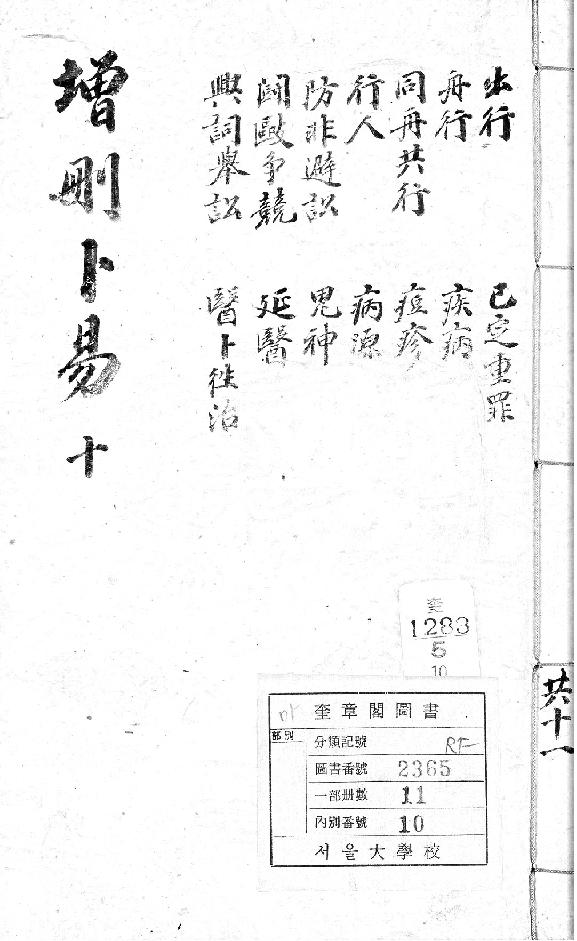 增刪卜易 十
出行
舟行
同舟共行
行人
防非避訟
鬪毆爭競
興詞舉訟
已定重罪
疾病
痘疹
病源
鬼神
延醫
醫卜往治
共十一
奎
1283
5
10
마
奎章閣圖書
部別
分類記號
圖書番號 2365
一部册數 11
內別番號 10
서울大學校